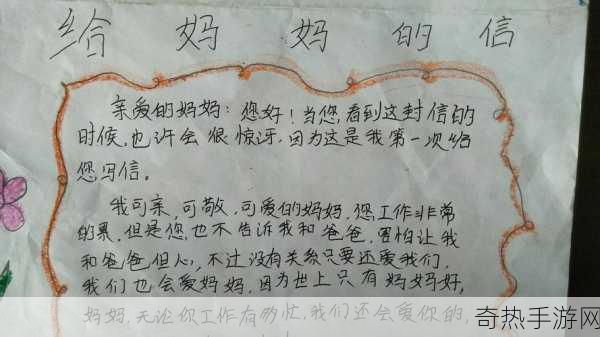 给妈妈的信
亲爱的妈妈：您好！当您看到这封信的
时候，也许会很惊讶，因为这是我第一次给
您写信。
我可亲，可敬，可爱的妈妈，您工作非常
的累，但是您也不告诉我和爸爸，害怕让我
和爸爸但心，不过没有关系只要还爱我们，
我们也会爱妈妈，因为世上只有妈妈好，
妈妈，无论你工作有多忙，我们还会爱你的，
奇热手游网